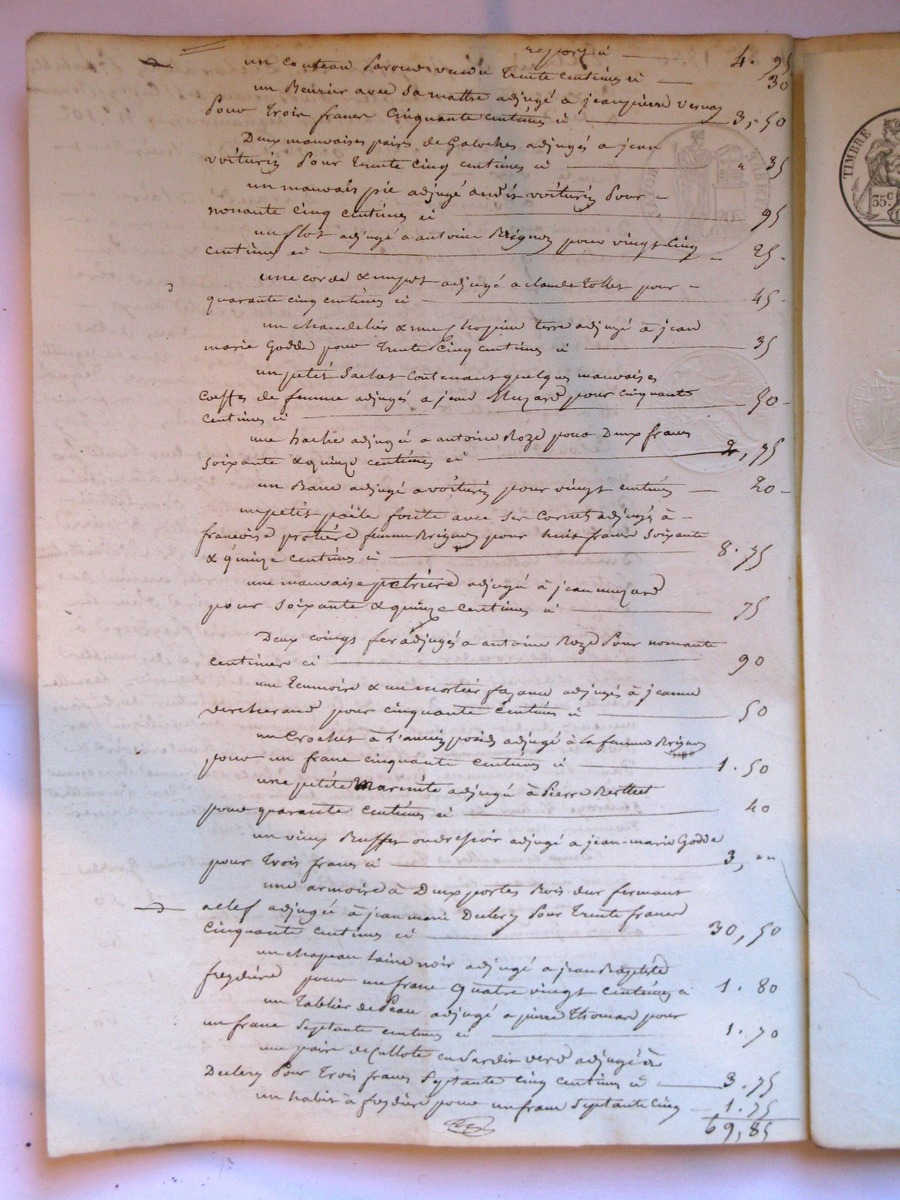 report ci — 4. 95
un couteau Paroud vendu trente centimes ci — 30
un Benzier avec sa mattre adjugé a jeanpierre Vernay
Pour Trois francs Cinquante centimes ci — 3,-50
Deux mauvaises pairs de Galoches adjugés a jean
voiturin Pour trente cinq centimes ci — " 35
un mauvais pic adjugé audit voiturin Pour -
nonante cinq centimes ci — 95
un flot adjugé a antoine Brignon pour vingt cinq
centimes ci — 25-
une corde & un pot adjugé a claude tollet pour -
quarante cinq centimes ci — 45-
un chandelier & une chopine terre adjugé à jean
marie Godde pour trente cinq centimes ci — 35
un petit Sac contenant quelques mauvaises
Coiffes de femme adjugés a jean Muzard pour cinquante
centimes ci — 50-
une hache adjugée a antoine Roze pour Deux francs
soixante & quinze centimes ci — 2,75
un Banc adjugé a voiturin pour vingt centimes — 20-
un petit poile fonte avec ses Cornets adjugés à -
francoise protiere femme Brignon pour huit francs soixante
& quinze centimes ci — 8.75
une mauvaise petrière adjugé à jean muzard
pour soixante & quinze centimes ci — 75
Deux coings fer adjugés a antoine Roze Pour nonante
centimes ci — 90
une & un mortier adjugés à jeanne
vercherand pour cinquante centimes ci — 50
un Crochet à l'ancien poids adjugé à la femme Brignon
pour un franc cinquante centimes ci — 1.50
une petite Marmite adjugé à Pierre Berthet
pour quarante centimes ci — 40
un vieux Buffet ou dressoir adjugé à jean-marie Godde
pour trois francs ci — 3,""
une armoire à Deux portes Bois dur fermant
a clef adjugée à jean marie Duclery Pour trente francs
cinquante centimes ci — 30,50
un chapeau laine noir adjugé a jean Baptiste
freydière pour un franc Quatre vingt centimes ci 1.80
un tablier de Peau adjugé a pierre Thomas pour
un franc Septante centimes ci — 1.70
une paire de Cullote en Sardis verd adjugé à
Duclery Pour Trois francs Septante cinq centimes ci — 3.75
un habit à freydière pour un franc Septante cinq — 1.75
69,85
TIMBRE
35c